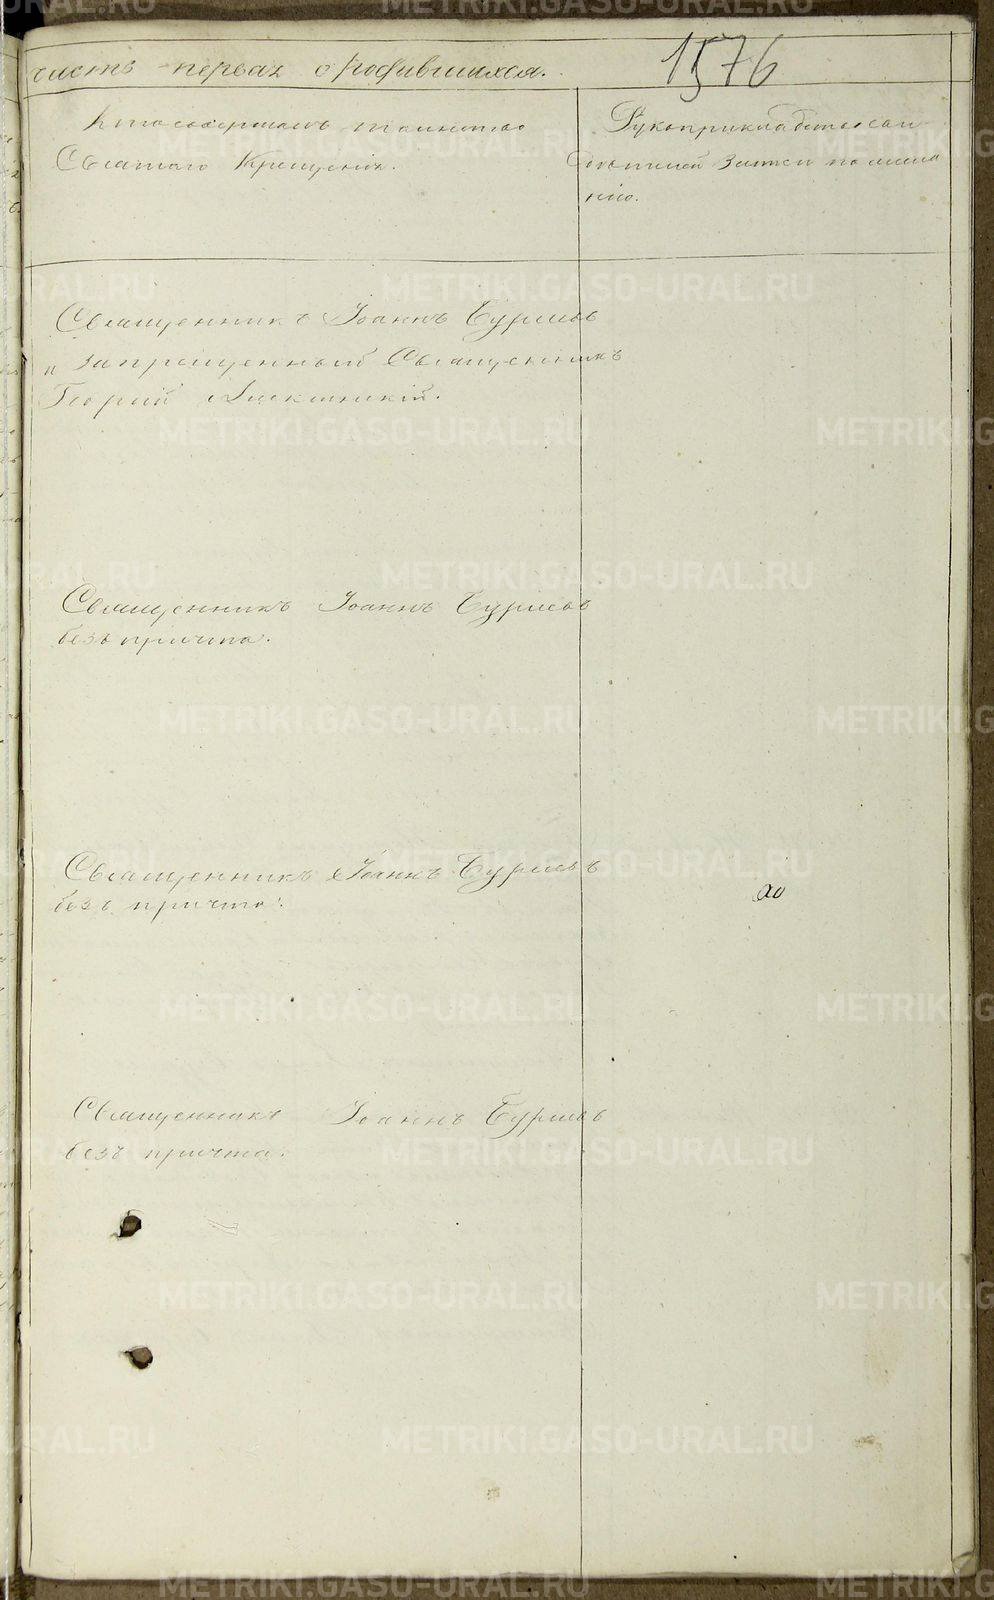 часть первая о родившихся.
1576
Кто совершалъ таинство
Святаго Крещенія.
Рукоприкладство сви
записи по жела
нію.
Священникъ Іоаннъ Бурцевъ
и запрещенный Священникъ
Георгій
Священникъ Іоаннъ Бурцевъ
безъ причта.
Священникъ Іоаннъ Бурцевъ
безъ причта.
Священникъ Іоаннъ Бурцевъ
безъ причта.
METRIKI.GASO-URAL.RU